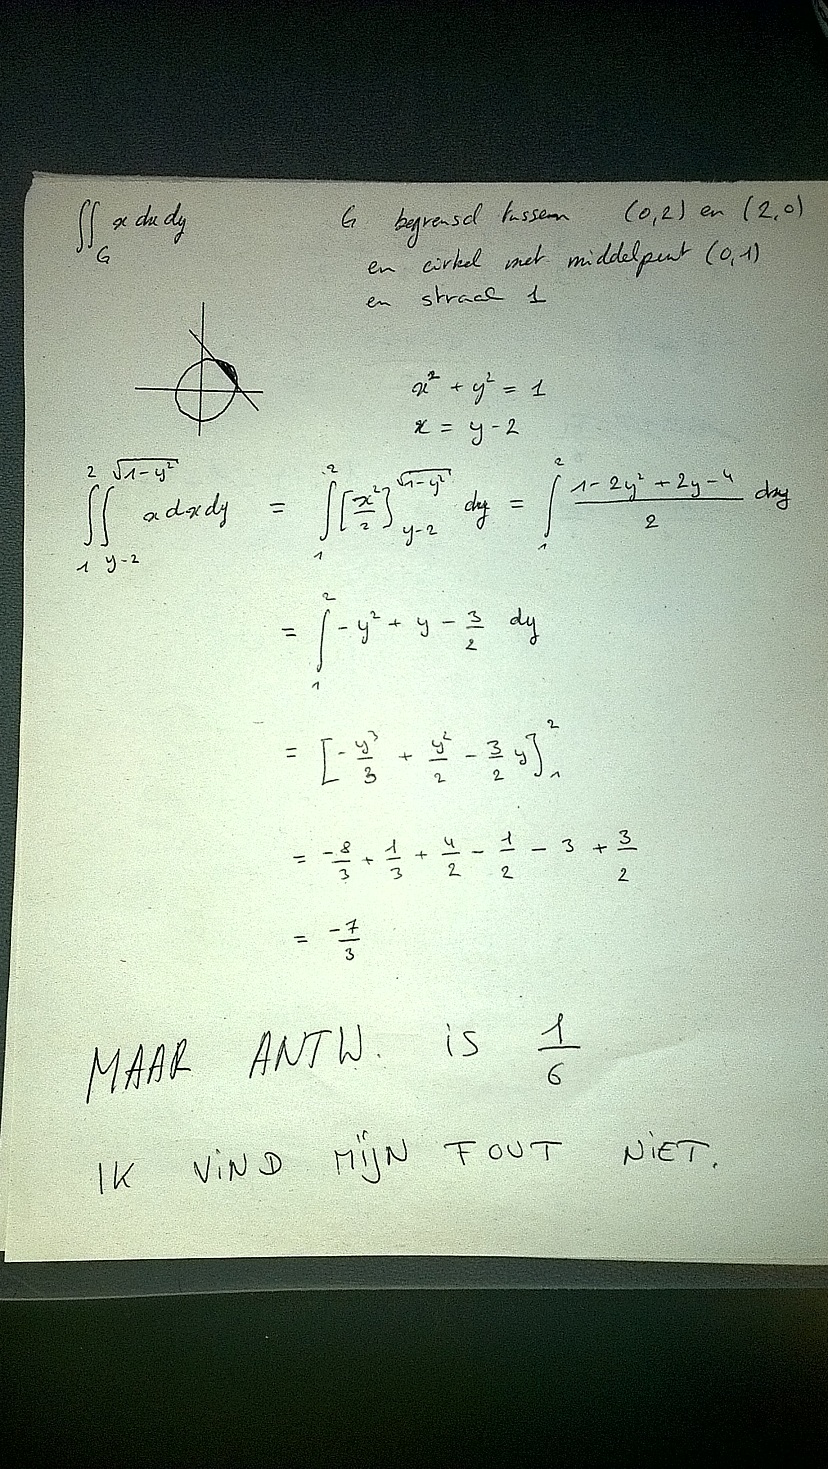 ∬_G x dx dy G begrensd tussen (0,2) en (2,0)
en cirkel met middelpunt (0,1)
en straal 1
x² + y² = 1
x = y - 2
∬_{1, y-2}^{2, √(1-y²)} x dx dy = ∫_1^2 [x²/2]_{y-2}^{√(1-y²)} dy = ∫_1^2 (1 - 2y² + 2y - 4)/2 dy
= ∫_1^2 - y² + y - 3/2 dy
= [- y³/3 + y²/2 - 3/2 y]_1^2
= -8/3 + 1/3 + 4/2 - 1/2 - 3 + 3/2
= -7/3
MAAR ANTW. is 1/6
IK VIND MIJN FOUT NIET.